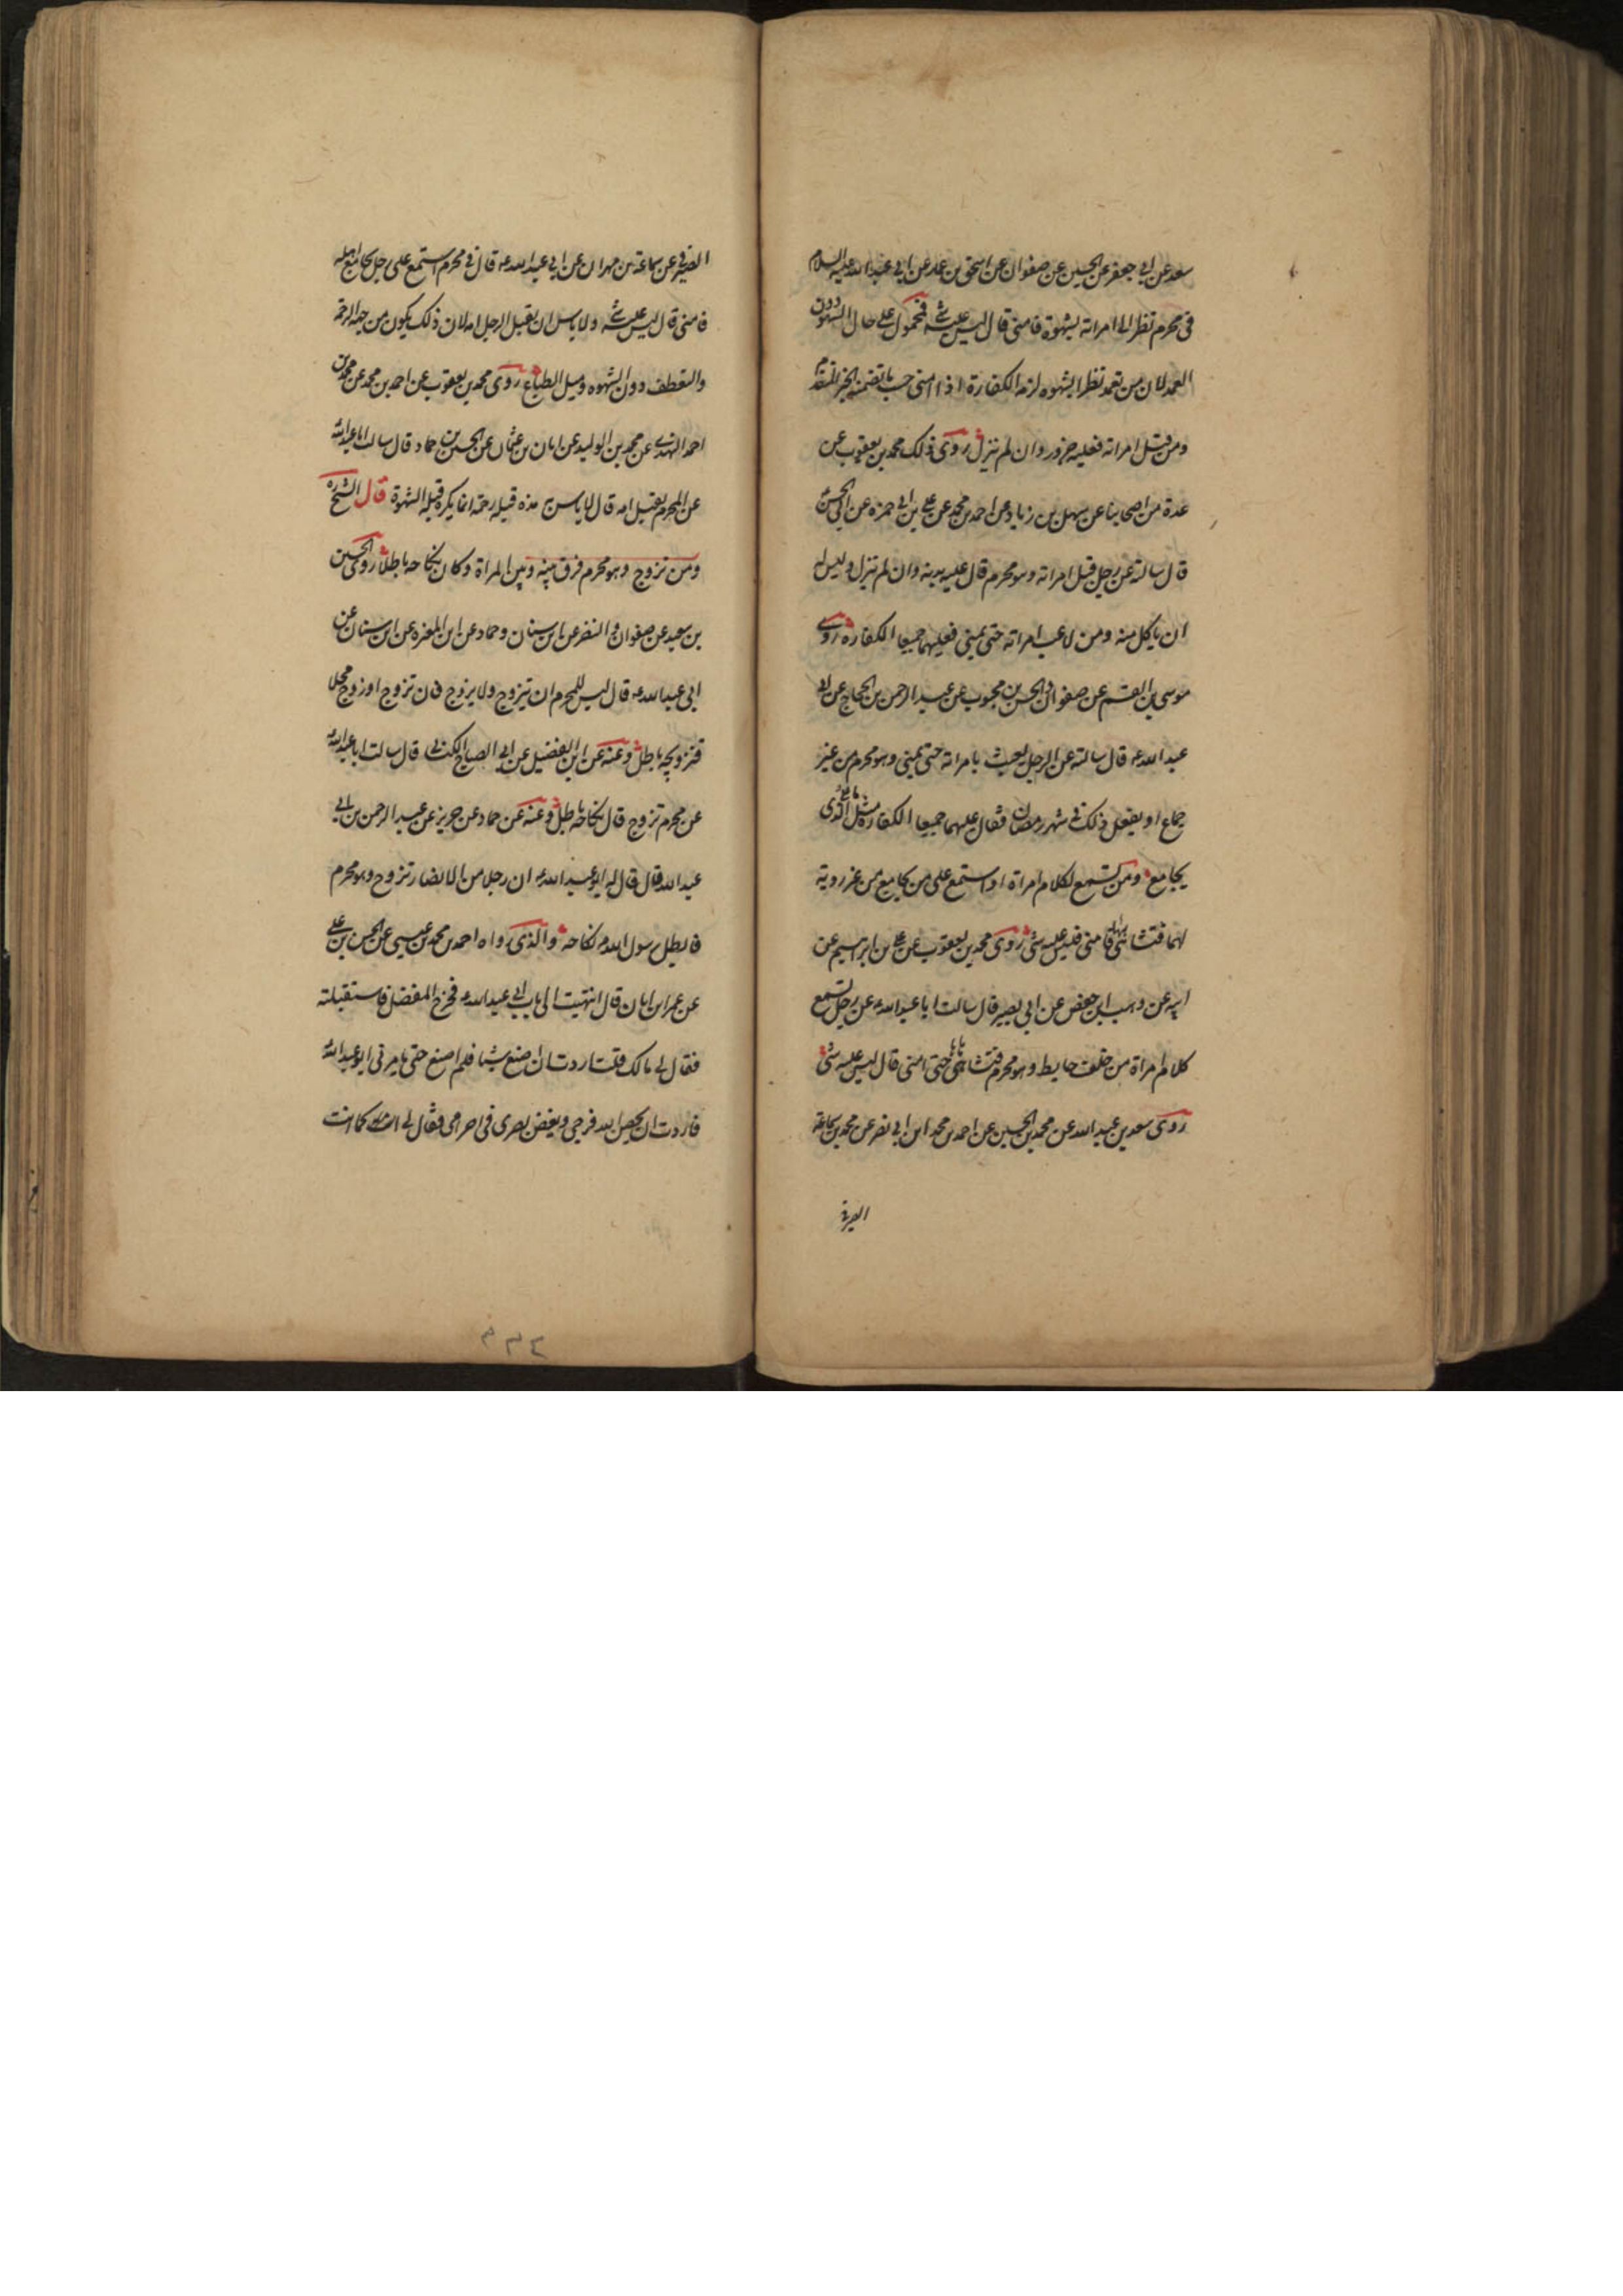 سعد عن ابي جعفر عن الحسين عن صفوان عن اسحق بن عمار عن ابي عبد الله عليه السلام
في محرم نظر الى امراته بشهوة فامنى قال ليس عليه شئ فمحمول على حال السهو دون
العمد لان من تعمد نظرا بشهوه لزمه الكفارة اذا امنى حسب ما تضمنه الخبر المتقدم
ومن قبل امراته فعليه جزور وان لم ينزل روى ذلك محمد بن يعقوب عن
عدة من اصحابنا عن سهل بن زياد عن احمد بن محمد عن علي بن ابي حمزه عن ابي الحسن
قال سالته عن رجل قبل امراته وهو محرم قال عليه بدنه وان لم ينزل وليس له
ان ياكل منه ومن لاعب امراته حتى يمني فعليهما جميعا الكفاره روى
موسى بن القسم عن صفوان والحسن بن محبوب عن عبد الرحمن بن الحجاج عن ابي
عبد الله ع قال سالته عن الرجل يعبث بامراته حتى يمني وهو محرم من غير
جماع او يفعل ذلك في شهر رمضان فقال عليهما جميعا الكفارة مثل ما على الذي
يجامع ومن تسمع لكلام امراة او استمع على من يجامع من غير روية
لهما فتشاهى فامنى فليس عليه شئ روى محمد بن يعقوب عن علي بن ابراهيم عن
ابيه عن وهيب بن حفص عن ابي بصير قال سالت ابا عبد الله ع عن رجل تسمع
كلام امراة من خلف حايط وهو محرم فتشاهى حتى امنى قال ليس عليه شئ
روى سعد بن عبد الله عن محمد بن الحسين عن احمد بن محمد ابن ابي نصر عن محمد بن سماعة
الصيرفي
الصيرفي عن سماعة بن مهران عن ابي عبد الله ع قال في محرم استمع على رجل يجامع اهله
فامنى قال ليس عليه شئ ولا باس ان يقبل الرجل امه لان ذلك يكون من جهه الرحمة
والتعطف دون الشهوه وميل الطباع روى محمد بن يعقوب عن احمد بن محمد عن محمد بن
احمد النهدي عن محمد بن الوليد عن ابان بن عثمان عن الحسين بن حماد قال سالت ابا عبد الله
عن المحرم يقبل امه قال لا باس هذه قبلة رحمة انما يكره قبلة الشهوة قال الشيخ ره
ومن تزوج وهو محرم فرق بينه وبين المراة وكان نكاحه باطلا روى الحسين
بن سعيد عن صفوان والنضر عن ابن سنان وحماد عن ابن المغيره عن ابن سنان عن
ابي عبد الله ع قال ليس للمحرم ان يتزوج ولا يزوج فان تزوج او زوج محلا
فتزويجه باطل وعنه عن ابن الفضيل عن ابي الصباح الكناني قال سالت ابا عبد الله
عن محرم تزوج قال نكاحه باطل وعنه عن حماد عن حريز عن عبد الرحمن بن ابي
عبد الله قال قال له ابو عبد الله ع ان رجلا من الانصار تزوج وهو محرم
فابطل رسول الله ص نكاحه والذي رواه احمد بن محمد بن عيسى عن الحسن بن علي
عن عمر ابن ابان قال انتهيت الى باب ابي عبد الله ع فخرج المفضل فاستقبلته
فقال لي مالك قلت اردت ان اصنع شيئا فلم اصنع حتى يامرني ابو عبد الله
فاردت ان يحصن الله فرجي ويغض بصري في احرامي فقال لي كما انت
٤٣٣